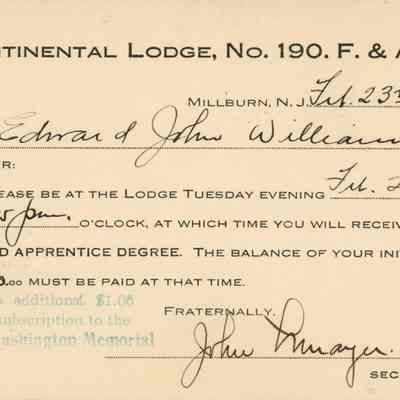 TINENTAL LODGE, NO. 190. F. & A
MILLBURN, N. J. Feb. 23
Edward John William
ER:
EASE BE AT THE LODGE TUESDAY EVENING Feb. 2
pm. O'CLOCK, AT WHICH TIME YOU WILL RECEIV
D APPRENTICE DEGREE. THE BALANCE OF YOUR INI
.00 MUST BE PAID AT THAT TIME.
additional $1.00
subscription to the
ashington Memorial
FRATERNALLY,
John
SEC